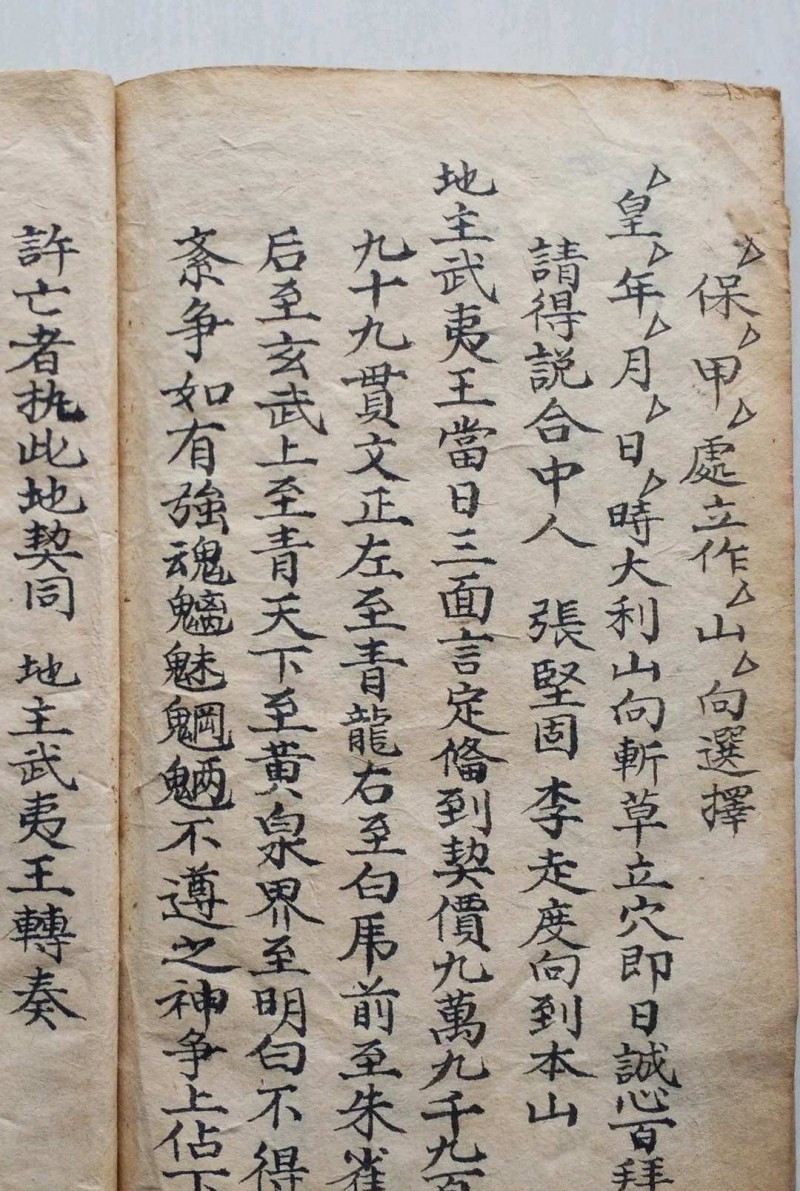 保甲處立作山向選擇
皇年月日時大利山向斬草立穴即日誠心百拜
請得説合中人 張堅固 李定度向到本山
地主武夷王當日三面言定俻到契價九萬九千九百
九十九貫文正左至青龍右至白虎前至朱雀
后至玄武上至青天下至黄泉界至明白不得
紊争如有強魂魑魅魍魎不遵之神争上佔下
許亡者执此地契同 地主武夷王轉奏